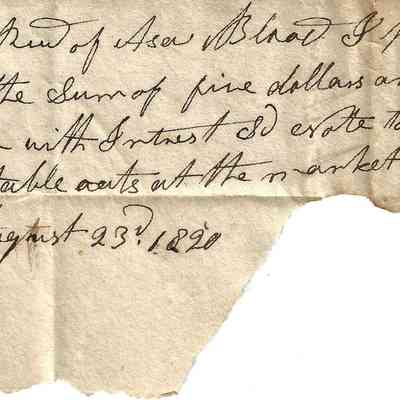 of Asa Blood I p
the Sum of five dollars an
with Intrest Sd
table oats at the market
ugust 23d. 1820